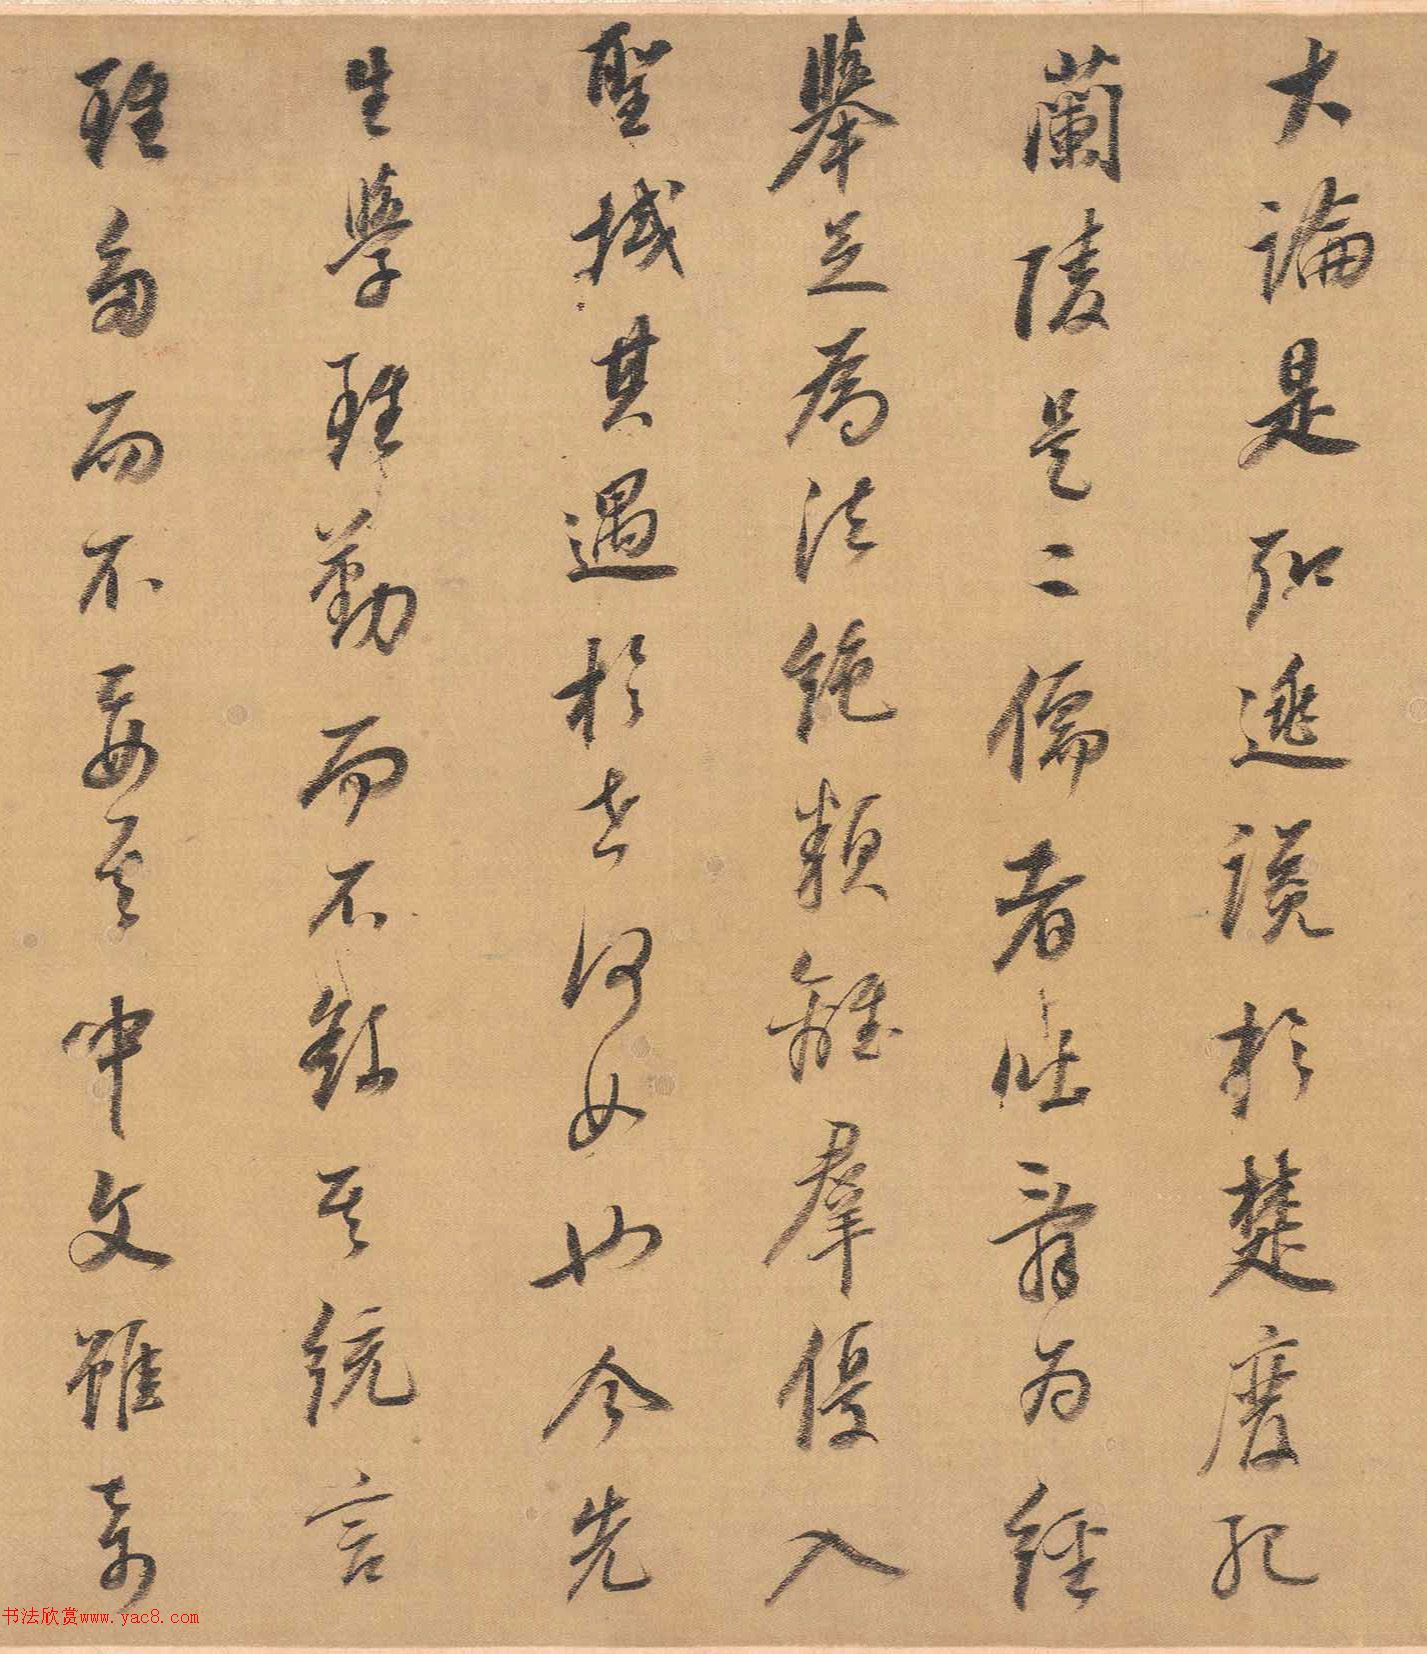 大論是弘逃讒於楚廢死
蘭陵是二儒者吐辭為經
舉足為法絕類離羣優入
聖域其遇於世何如也今先
生學雖勤而不繇其統言
雖多而不要其中文雖奇
书法欣赏www.yac8.com